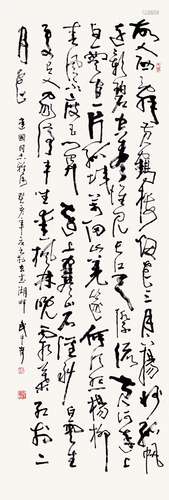 故人西辞黄鹤楼烟花三月下扬州孤帆
远影碧空尽唯见长江天际流黄河远上
白云间一片孤城万仞山羌笛何须怨杨柳
春风不度玉门关远上寒山石径斜白
云生处有人家停车坐爱枫林晚霜叶红于二
月花 建国同志